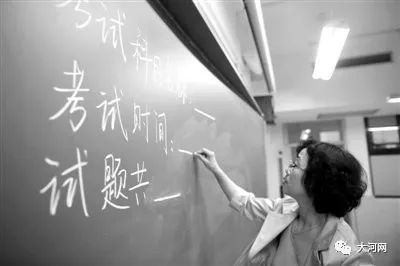 考试科目
考试时间：
试题共
大河网